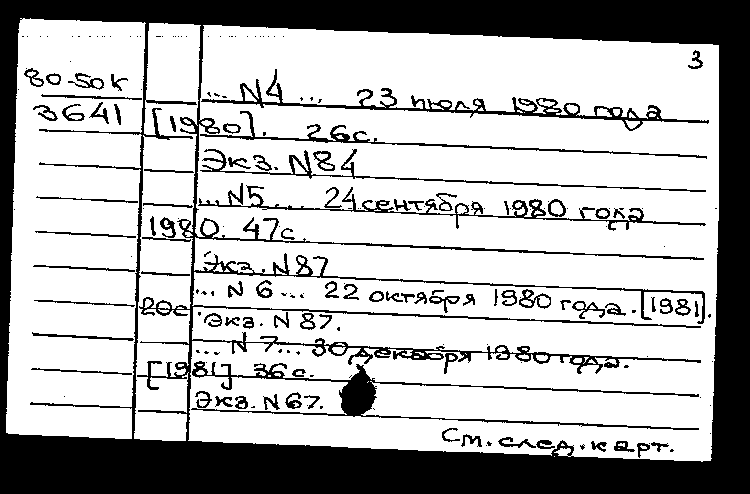 3
80-50к
3641
... N4 ... 23 июля 1980 года
[1980]. 26с.
Экз. N84
... N5 ... 24 сентября 1980 года
1980. 47с.
Экз. N87
... N 6 ... 22 октября 1980 года. [1981].
20с Экз. N 87.
... N 7... 30 декабря 1980 года.
[1981] 36с.
Экз. N67.
См. след. карт.